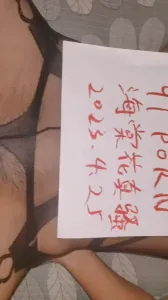 91 PORN
海棠花真骚
2023.4.25